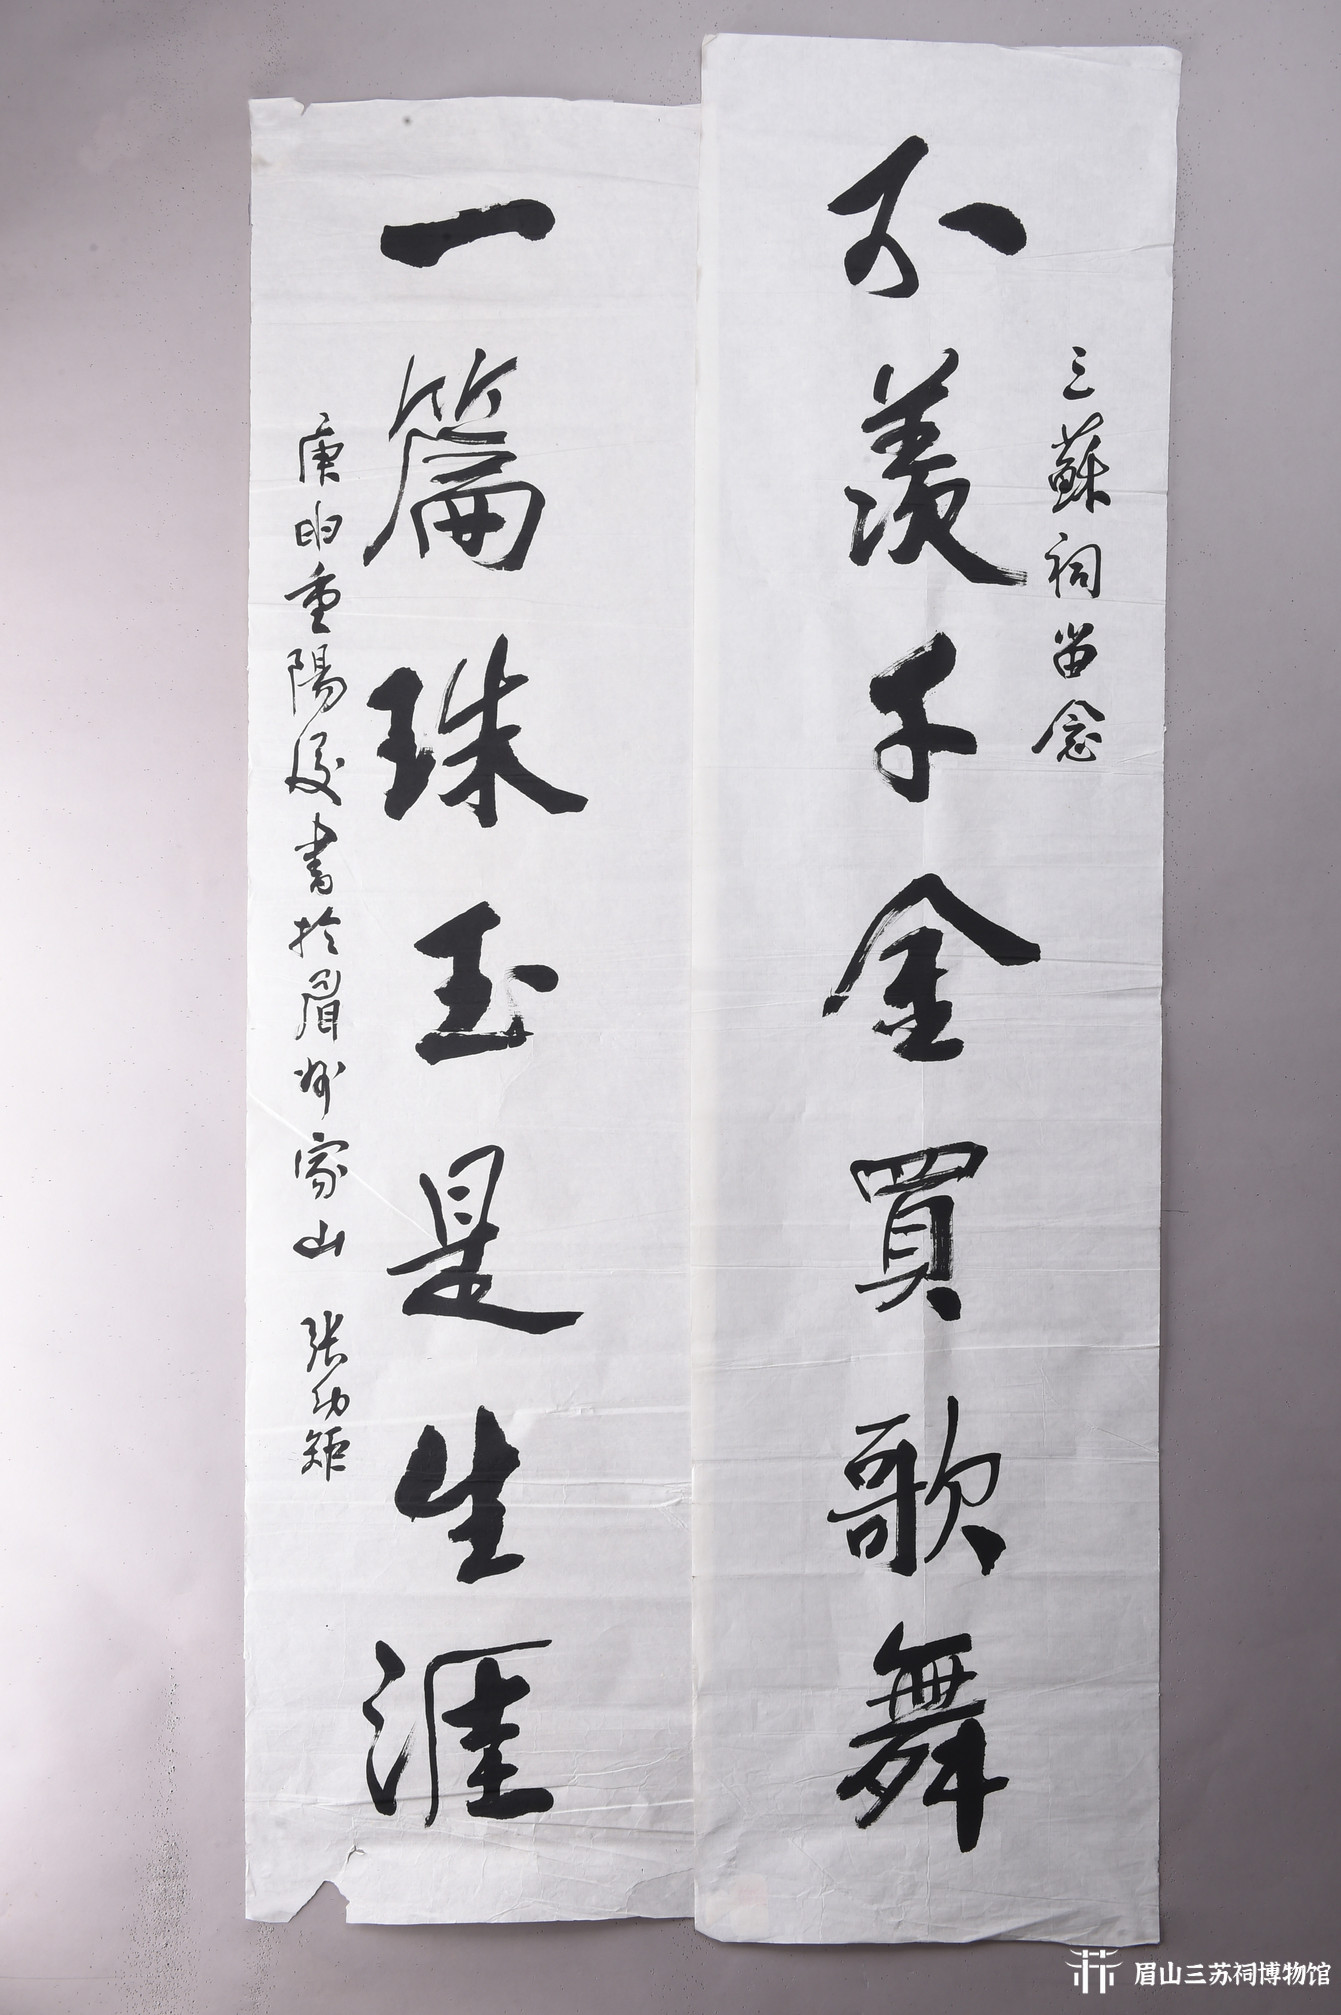 三蘇祠留念
不羨千金買歌舞
一篇珠玉是生涯
庚申重陽後書於眉州家山 張功矩
眉山三苏祠博物馆